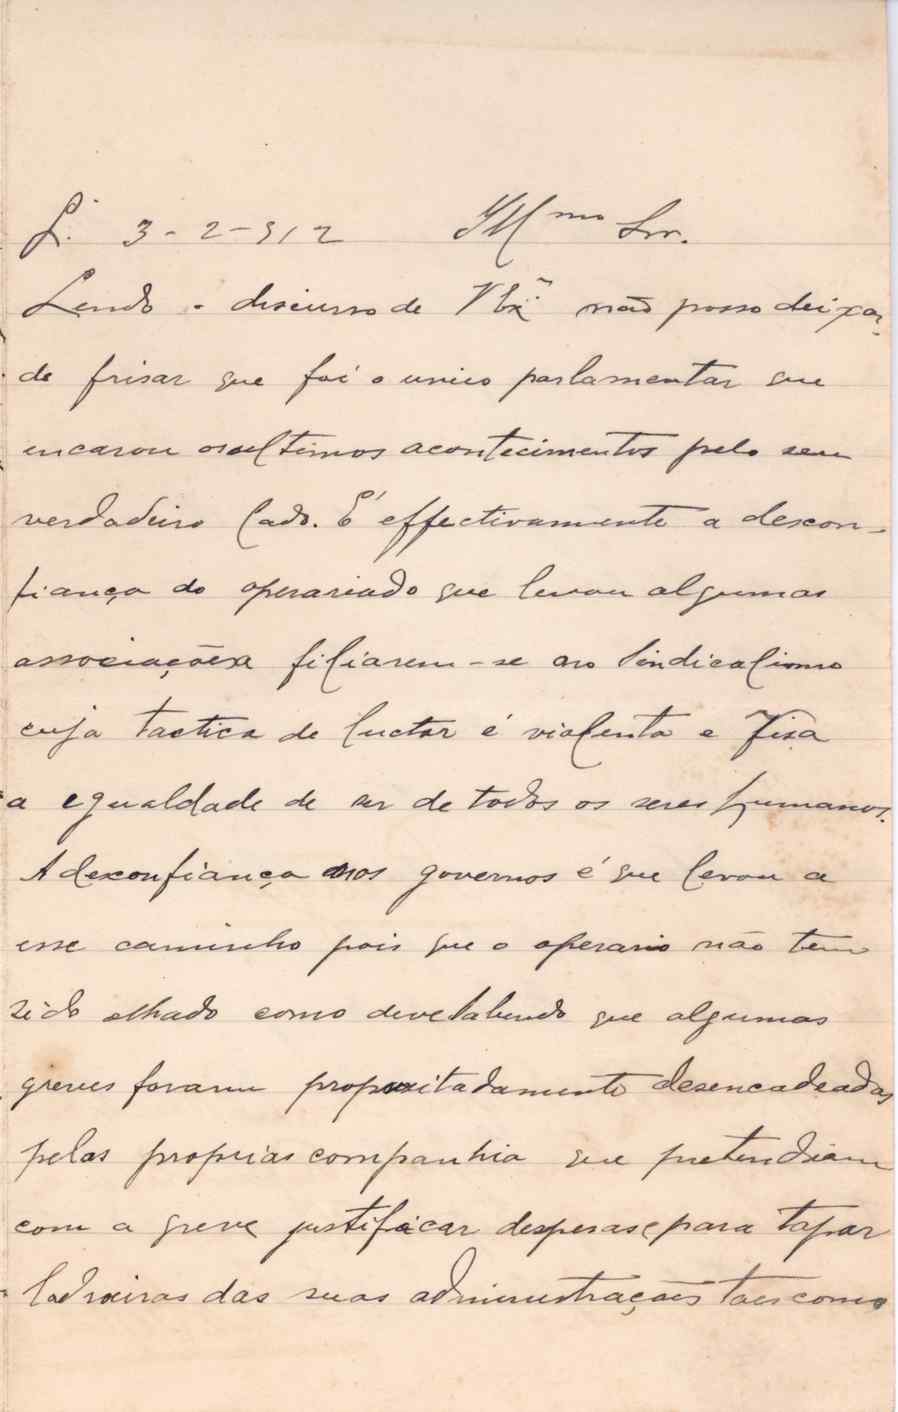 L. 3-2-912 Illmo Snr.
Lendo o discurso de V Exª não posso deixar
de frisar que foi o unico parlamentar que
encarou os ultimos acontecimentos pelo seu
verdadeiro lado. É effectivamente a descon-
fiança do operariado que levou algumas
associações filiarem-se ao sindicalismo
cuja tactica de luctar é violenta e fixa
a egualdade de ser de todos os seres humanos.
A desconfiança nos governos é que levou a
esse caminho pois que o operario não tem
sido olhado como deve sabendo que algumas
greves foram propositadamente desencadeadas
pelas proprias companhia que pretendiam
com a greve justificar desperas e para tapar
ladroeiras das suas administrações taes como